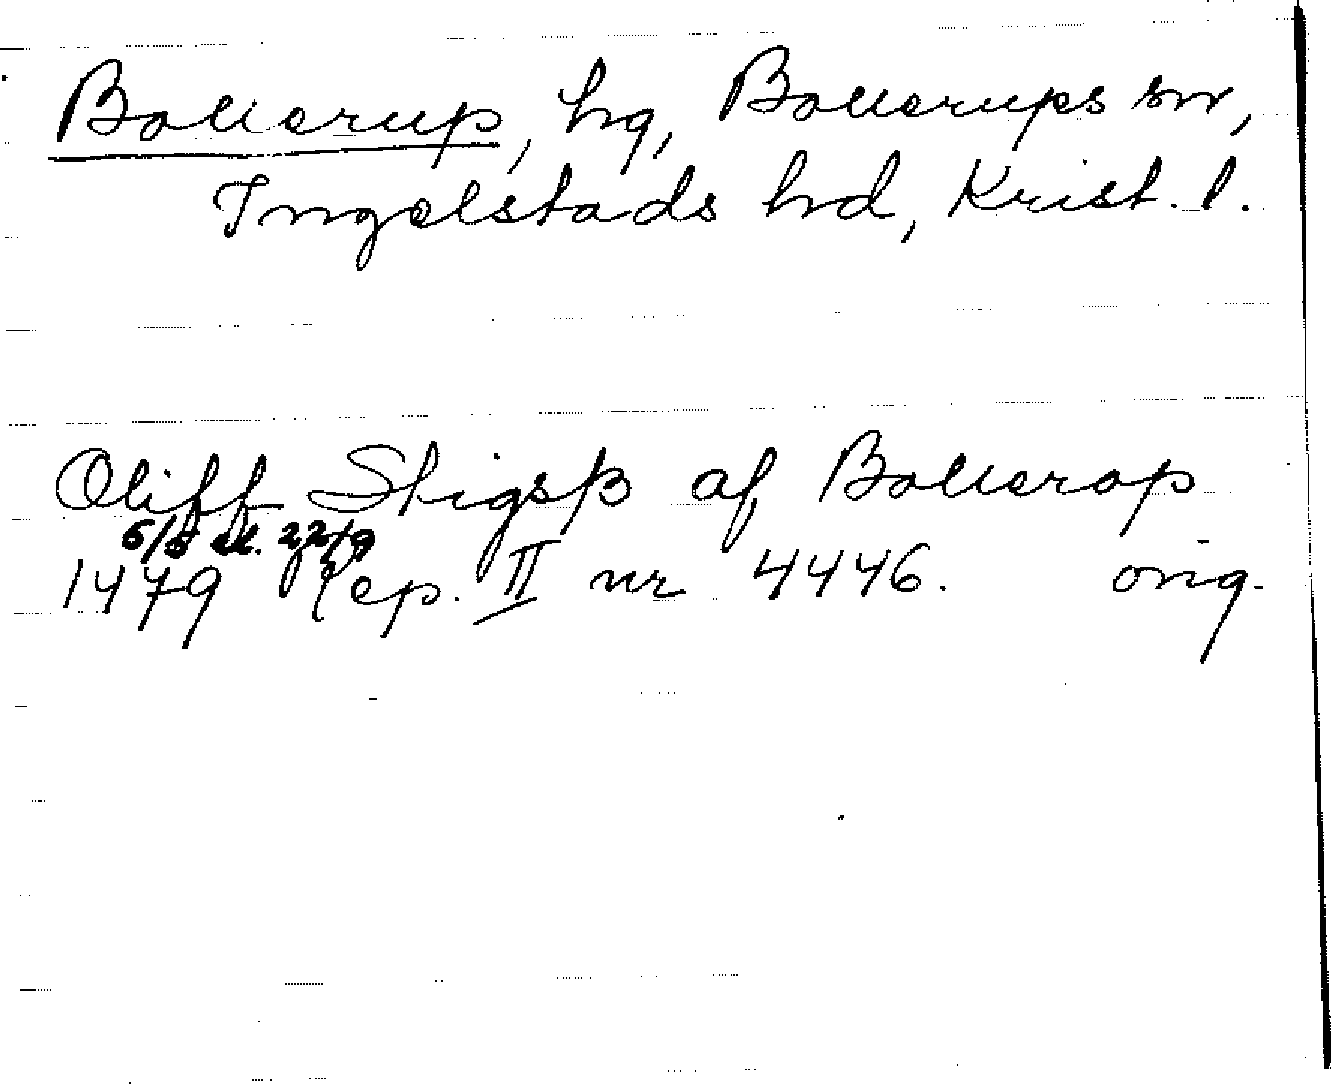 Bollerup, hg, Bollerups sn,
Ingelstads hd, Krist. l.
Oliff Stigsß af Bollerop
5/5 el. 22/9
1479 Rep. II nr 4446. orig.